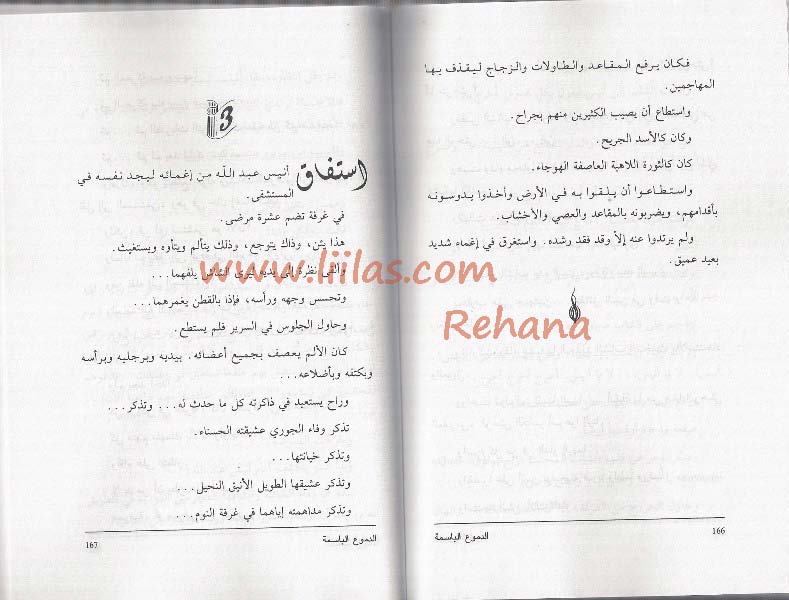 فكان يرفع المقاعد والطاولات والزجاج ليقذف بها
المهاجمين.
واستطاع أن يصيب الكثيرين منهم بجراح.
وكان كالأسد الجريح.
كان كالثورة اللاهبة العاصفة الهوجاء.
واستطاعوا أن يلقوا به في الأرض وأخذوا يدوسونه
بأقدامهم، ويضربونه بالمقاعد والعصي والأخشاب.
ولم يرتدوا عنه إلا وقد فقد رشده. واستغرق في إغماء شديد
بعيد عميق.
الدموع الباسمة
166
3
استفاق أنيس عبد الله من إغمائه ليجد نفسه في
المستشفى.
في غرفة تضم عشرة مرضى.
هذا يئن، وذاك يتوجع، وذلك يتألم ويتأوه ويستغيث.
وألقى نظرة إلى يديه ليرى الشاش يلفهما...
وتحسس وجهه ورأسه، فإذا بالقطن يغمرهما...
وحاول الجلوس في السرير فلم يستطع.
كان الألم يعصف بجميع أعضائه. بيديه وبرجليه وبرأسه
وبكتفه وبأضلاعه...
وراح يستعيد في ذاكرته كل ما حدث له... وتذكر...
تذكر وفاء الجوري عشيقته الحسناء.
وتذكر خيانتها...
وتذكر عشيقها الطويل الأنيق النحيل...
وتذكر مداهمته إياهما في غرفة النوم...
الدموع الباسمة
167
www.liilas.com
Rehana